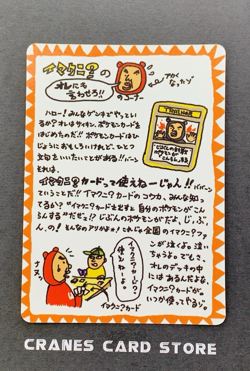 イマクニ?の
オレにも
言わせろ!!
のコーナー
アカく
なったゾ
ハロー!みんなゲンキでやってい
るか?オレはサイキン、ポケモンカードを
はじめたのだ!!ポケモンカードはひ
じょうにおもしろいけれど、ひとつ
文句をいいたいことがある!!バーン
それは、
イマクニ?カードって使えねーじゃん!!ババーン
ていうことだ!!イマクニ?カードのコウカ、みんな知っ
てるか?"イマクニ?カードをだすと自分のポケモンがこん
らんする"だぜっ!?じぶんのポケモンがだよ、じ、ぶ、
ん、の!そんなのアリかよォ!これじゃ全国のイマクニ?ファ
ンが泣くよ。泣い
ちゃうよ。でも、
オレのデッキの中
には
あるんだよな、
イマクニ?カードが。
いつか使ってやるゾ。
イマクニ?カード
ナヌ!!
CRANES CARD STORE